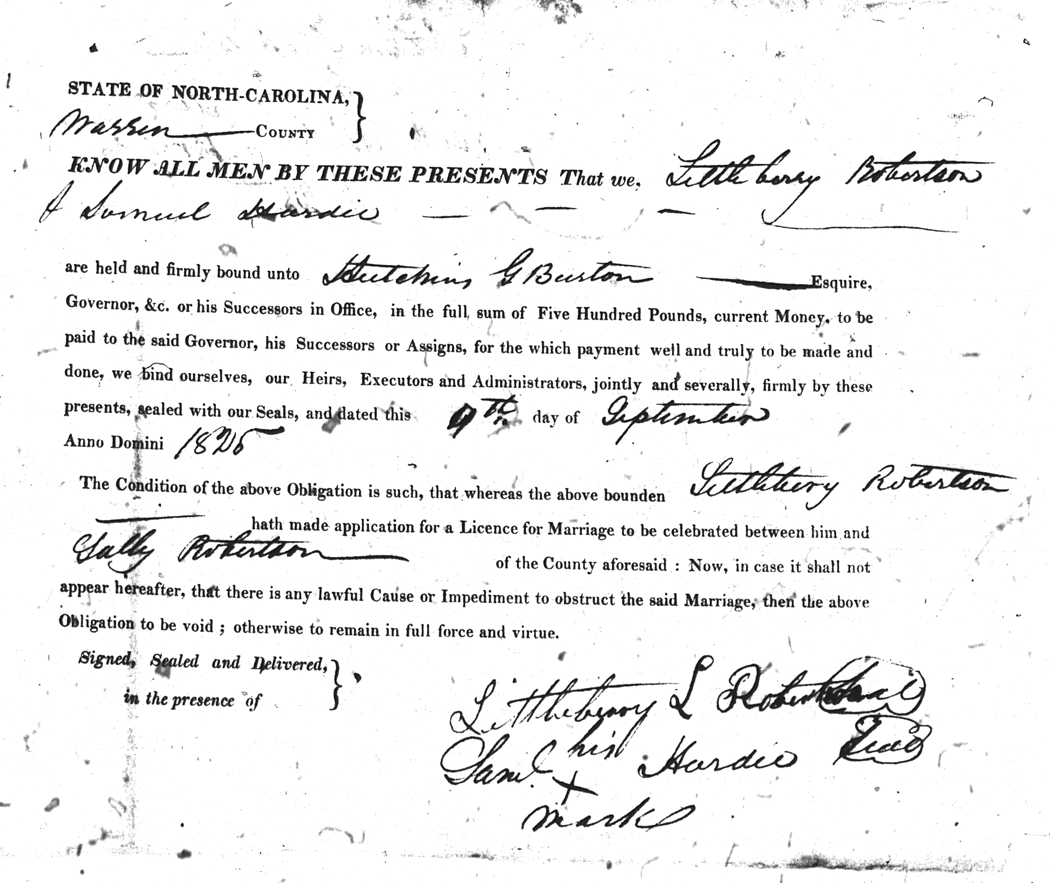 STATE OF NORTH-CAROLINA, }
Warren COUNTY
KNOW ALL MEN BY THESE PRESENTS That we, Littleberry Robertson
& Samuel Hardie
are held and firmly bound unto Hutchins G Burton Esquire,
Governor, &c. or his Successors in Office, in the full sum of Five Hundred Pounds, current Money, to be
paid to the said Governor, his Successors or Assigns, for the which payment well and truly to be made and
done, we bind ourselves, our Heirs, Executors and Administrators, jointly and severally, firmly by these
presents, sealed with our Seals, and dated this 9th day of September
Anno Domini 1825
The Condition of the above Obligation is such, that whereas the above bounden Littleberry Robertson
hath made application for a Licence for Marriage to be celebrated between him and
Sally Robertson of the County aforesaid : Now, in case it shall not
appear hereafter, that there is any lawful Cause or Impediment to obstruct the said Marriage, then the above
Obligation to be void ; otherwise to remain in full force and virtue.
Signed, Sealed and Delivered, }
in the presence of
Littleberry L Robertson Seal
Saml his Hardie Seal
X
mark